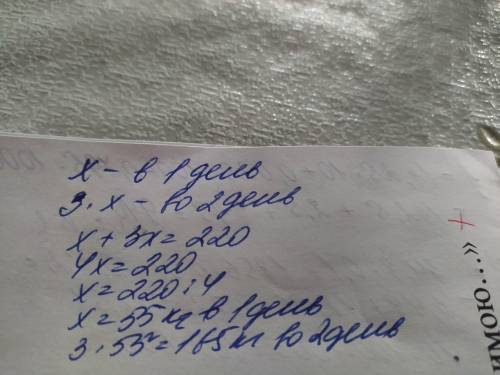 x - в 1 день
3·x - во 2 день
x + 3x = 220
4x = 220
x = 220 : 4
x = 55 кг в 1 день
3·55 = 165 кг во 2 день
+
имою...»